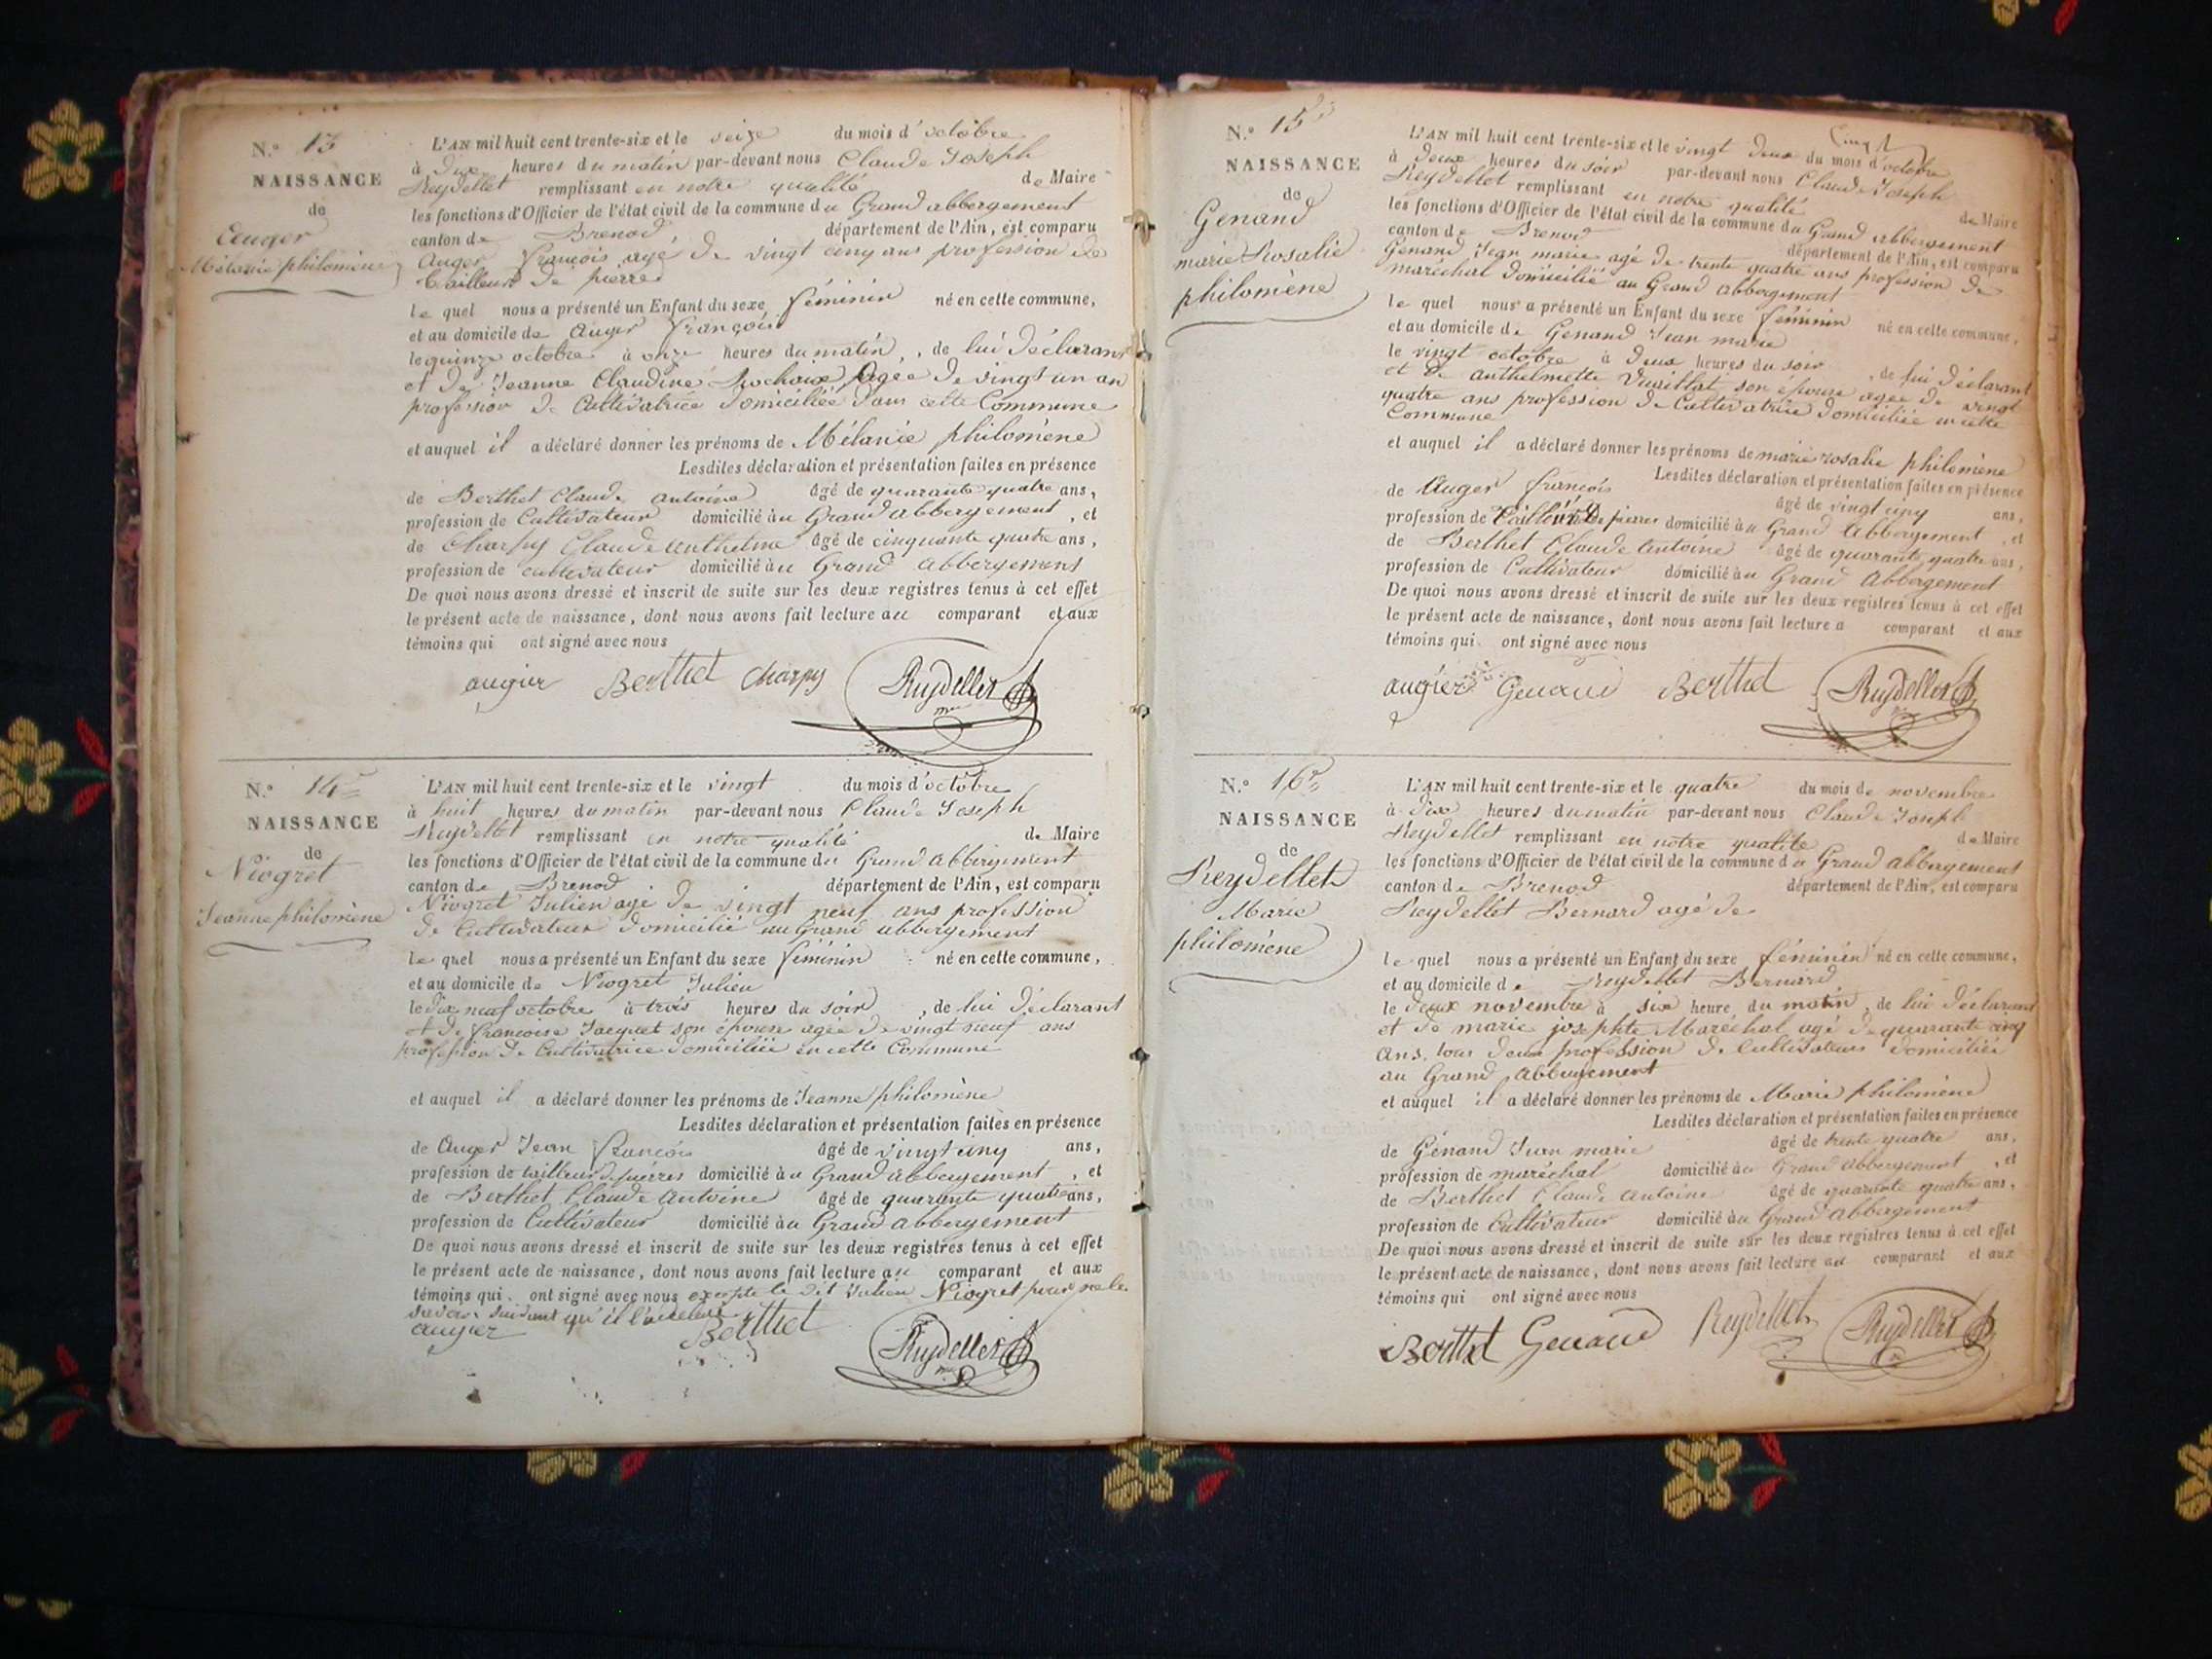 N.° 13
NAISSANCE
de
Auger
Mélanie philomène
L'AN mil huit cent trente-six et le seize du mois d'octobre
à dix heures du matin par-devant nous Claude Joseph
Reydellet remplissant en notre qualité de Maire
les fonctions d'Officier de l'état civil de la commune du Grand abbergement
canton de Brenod département de l'Ain, est comparu
Auger françois agé de vingt cinq ans profession de
tailleur de pierre
le quel nous a présenté un Enfant du sexe féminin né en cette commune,
et au domicile de Auger françois
le quinze octobre à onze heures du matin, de lui déclarant
et de Jeanne Claudine Rochaix agée de vingt un an
profession de Cultivatrice domiciliée dans cette Commune
et auquel il a déclaré donner les prénoms de Mélanie philomène
Lesdites déclaration et présentation faites en présence
de Berthet Claude antoine âgé de quarante quatre ans,
profession de Cultivateur domicilié au Grand abbergement, et
de Charpy Claude anthelme âgé de cinquante quatre ans,
profession de cultivateur domicilié au Grand abbergement
De quoi nous avons dressé et inscrit de suite sur les deux registres tenus à cet effet
le présent acte de naissance, dont nous avons fait lecture au comparant et aux
témoins qui ont signé avec nous
augier Berthet Charpy Reydellet
N.° 14
NAISSANCE
de
Niogret
Jeanne philomène
L'AN mil huit cent trente-six et le vingt du mois d'octobre
à huit heures du matin par-devant nous Claude Joseph
Reydellet remplissant en notre qualité de Maire
les fonctions d'Officier de l'état civil de la commune du Grand abbergement
canton de Brenod département de l'Ain, est comparu
Niogret Julien agé de vingt neuf ans profession
de Cultivateur domicilié au Grand abbergement
le quel nous a présenté un Enfant du sexe féminin né en cette commune,
et au domicile de Niogret Julien
le dix neuf octobre à trois heures du soir, de lui déclarant
et de francoise Jacquet son épouse agée de vingt neuf ans
profession de Cultivatrice domiciliée en cette Commune
et auquel il a déclaré donner les prénoms de Jeanne philomène
Lesdites déclaration et présentation faites en présence
de Auger Jean françois âgé de vingt cinq ans,
profession de tailleur de pierres domicilié au Grand abbergement, et
de Berthet Claude antoine âgé de quarante quatre ans,
profession de Cultivateur domicilié au Grand abbergement
De quoi nous avons dressé et inscrit de suite sur les deux registres tenus à cet effet
le présent acte de naissance, dont nous avons fait lecture au comparant et aux
témoins qui ont signé avec nous excepté le dit Julien Niogret pour ne le
savoir suivant qu'il l'a
augier Berthet Reydellet
N.° 15
NAISSANCE
de
Genand
marie Rosalie
philomène
L'AN mil huit cent trente-six et le vingt deux du mois d'octobre
à deux heures du soir par-devant nous Claude Joseph
Reydellet remplissant en notre qualité de Maire
les fonctions d'Officier de l'état civil de la commune du Grand abbergement
canton de Brenod département de l'Ain, est comparu
Genand Jean marie agé de trente quatre ans profession de
maréchal domicilié au Grand abbergement
le quel nous a présenté un Enfant du sexe féminin né en cette commune,
et au domicile de Genand Jean marie
le vingt octobre à deux heures du soir, de lui déclarant
et de anthelmette Vuaillat son épouse agée de vingt
quatre ans profession de Cultivatrice domiciliée en cette
Commune
et auquel il a déclaré donner les prénoms de marie rosalie philomène
Lesdites déclaration et présentation faites en présence
de Auger françois âgé de vingt cinq ans,
profession de tailleur de pierres domicilié au Grand Abbergement, et
de Berthet Claude antoine âgé de quarante quatre ans,
profession de Cultivateur domicilié au Grand Abbergement
De quoi nous avons dressé et inscrit de suite sur les deux registres tenus à cet effet
le présent acte de naissance, dont nous avons fait lecture a comparant et aux
témoins qui ont signé avec nous
augier Genand Berthet Reydellet
N.° 16
NAISSANCE
de
Reydellet
Marie
philomène
L'AN mil huit cent trente-six et le quatre du mois de novembre
à dix heures du matin par-devant nous Claude Joseph
Reydellet remplissant en notre qualité de Maire
les fonctions d'Officier de l'état civil de la commune du Grand abbergement
canton de Brenod département de l'Ain, est comparu
Reydellet Bernard agé de
le quel nous a présenté un Enfant du sexe féminin né en cette commune,
et au domicile de Reydellet Bernard
le deux novembre à six heure du matin, de lui déclarant
et de marie josephte Maréchal agé de quarante cinq
ans, tous deux profession de Cultivateurs domiciliés
au Grand Abbergement
et auquel il a déclaré donner les prénoms de Marie philomène
Lesdites déclaration et présentation faites en présence
de Génand Jean marie âgé de trente quatre ans,
profession de maréchal domicilié au Grand abbergement, et
de Berthet Claude antoine âgé de quarante quatre ans,
profession de Cultivateur domicilié au Grand abbergement
De quoi nous avons dressé et inscrit de suite sur les deux registres tenus à cet effet
le présent acte de naissance, dont nous avons fait lecture au comparant et aux
témoins qui ont signé avec nous
Berthet Genand Reydellet Reydellet